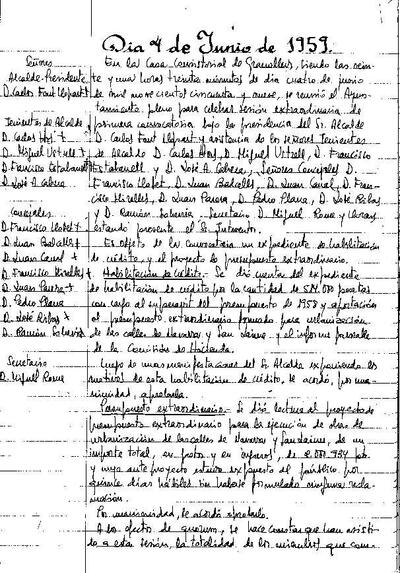 Día 4 de Junio de 1959.
Señores
Alcalde-Presidente
D. Carlos Font Llopart +
Tenientes de Alcalde
D. Carlos +
D. Miguel +
D. Francisco Estabanell +
D. José A. Cabrera
Concejales
D. Francisco Llobet +
D. Juan Badallés +
D. Juan Canal +
D. Francisco Mirelles +
D. Juan Parera +
D. Pedro Plana +
D. José Ribas +
D. Ramón
Secretario
D. Miguel Rome
En la Casa Consistorial de Granollers, siendo las vein-
te y una horas treinta minutos de día cuatro de junio
de mil novecientos cincuenta y nueve, se reunió el Ayun-
tamiento pleno para celebrar sesión extraordinaria de
primera convocatoria bajo la presidencia del Sr. Alcalde
D. Carlos Font Llopart y asistencia de los señores Tenientes
de Alcalde D. Carlos D. Miguel D. Francisco
Estabanell y D. José A. Cabrera, Señores Concejales D.
Francisco Llobet, D. Juan Badallés, D. Juan Canal, D. Fran-
cisco Mirelles, D. Juan Parera, D. Pedro Plana, D. José Ribas
y D. Ramón Secretario D. Miguel Rome y
estando presente el Sr. Interventor.
Es objeto de la convocatoria un expediente de habilitación
de crédito, y el proyecto de presupuesto extraordinario.
Habilitación de crédito.- Se dió cuenta del expediente
de habilitación de crédito por la cantidad de pesetas
con cargo al superavit del presupuesto de 1958 y aportación
al presupuesto extraordinario formado para urbanización
de las calles de Navarra y San Jaime, y el informe favorable
de la Comisión de Hacienda.
Luego de unas manifestaciones del Sr. Alcalde exponiendo los
motivos de esta habilitación de crédito, se acordó, por una-
nimidad, aprobarla.
Presupuesto extraordinario.- Se dió lectura al proyecto de
presupuesto extraordinario para la ejecución de obras de
urbanización de las calles de Navarra y San Jaime, de un
importe total, en gastos y en ingresos, de
y cuyo ante proyecto estuvo expuesto al público por
quince días hábiles sin haberse formulado ninguna recla-
mación.
Por unanimidad, se acordó aprobarlo.
A los efectos de quorum, se hace constar que han asisti-
do a esta sesión, la totalidad de los miembros que com-